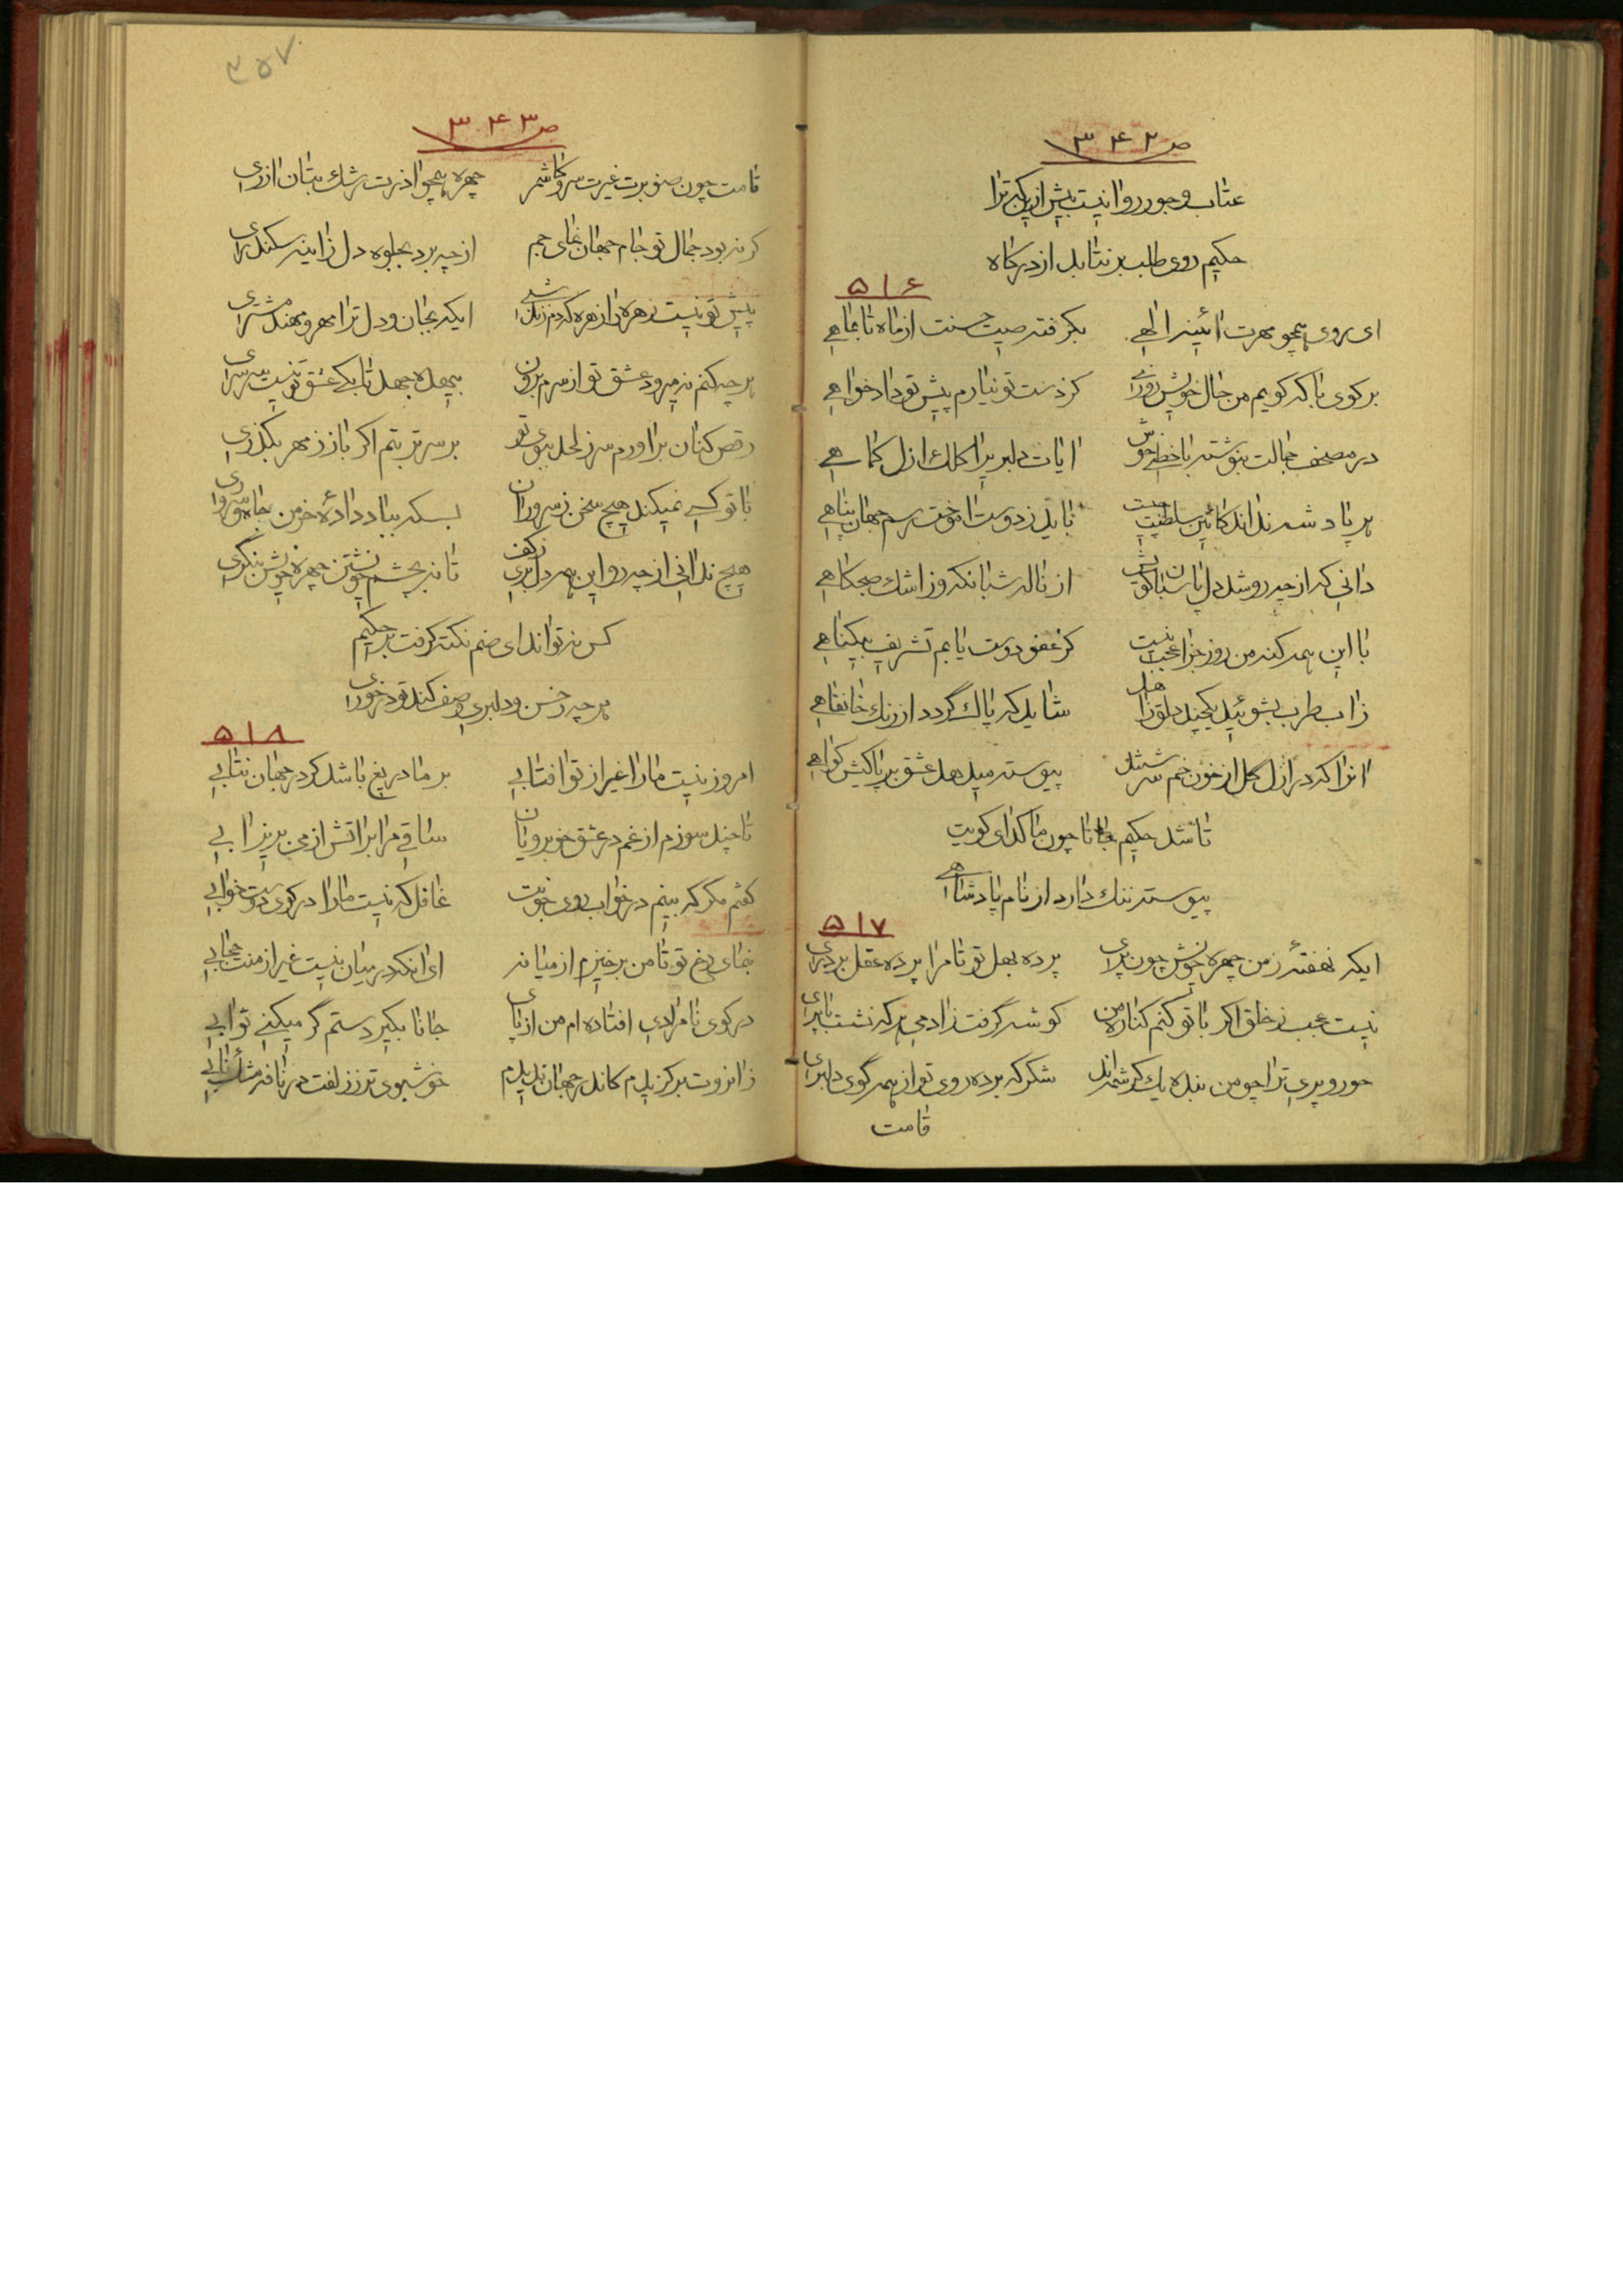 ص ۳۴۲
عتاب و جور روا نیست بیش از یکبر ترا
حکیم روی طلب بر نتابد از درکاه
۵۱۶
ای روی همچو مهرت ائینه الهی بکرفته صیت حسنت از ماه تا بماهی
بر کوی تا بکه کویم من حال خویش روزی کز دست تو نیارم پیش تو داد خواهی
در مصحف جمالت بنوشته با خط خوش ایات دلبریرا کلک ازل کماهی
هر پادشه نداند کائین سلطنت چیست باید ز دوست اموخت رسم جهان پناهی
دانی که از چه رو شد دل پاسبان کویش از ناله شبانکه وز اشک صبحکاهی
با این همه کنه من روز جزا عجب نیست کز عفو دوست یابم تشریف بیکناهی
زاب طرب بشوئید یکچند دلق زاهد شاید که پاک گردد از رنک خانقاهی
انرا که در ازل کل از خون خم سرشتند پیوسته میدهد عشق بر پاکیش کواهی
تا شد حکیم جانا چون ما کدای کویت
پیوسته ننک دارد از نام پادشاهی
۵۱۷
ایکه نهفتهٔ ز من چهره خویش چون پری پرده بهل تو تا مرا پرده عقل بردری
نیست عجب ز خلق اکر با تو کنم کناره من کوشه گرفت زادمی هر که نشست با پری
حور و پری ترا چو من بنده یک کرشمه‌اند شکر که برده روی تو از همه گوی دلبری
قامت
۳۵۷
ص ۳۴۳
قامت چون صنوبرت غیرت سرو کاشمر چهره همچو اذرت رشک بتان ازری
کر نه بود جمال تو جام جهان نمای جم از چه برد بجلوه دل زاینه سکندری
پیش تو نیست زهره‌ام از زهره که دم زند ایکه بجان و دل ترا مهر و مهند مشتری
هر چه کنم نمیرود عشق تو از سرم برون
رقص کنان براورم سر ز لحد ببوی تو بر سر تربتم اکر باز ز مهر بکذری
با تو کسی نمیکند هیچ سخن ز سروران بسکه بباد دادهٔ خرمن جاه و سروری
هیچ ندانی از چه رو این همه دل بری ز کف تا نه بچشم خویشتن چهره خویش بنگری
کس نه تواند ای صنم نکته کرفت بر حکیم
هر چه ز حسن و دلبری وصف کند تو درخوری
۵۱۸
امروز نیست ما را غیر از تو افتابی بر ما دریغ باشد کر در جهان نتابی
تا چند سوزم از غم در عشق خوبرویان ساقی مرا بر اتش از می بریز ابی
کفتم مکر که بینم در خواب روی خوبت غافل که نیست ما را در کوی دوست خوابی
بنمای رخ تو تا من برخیزم از میانه ای انکه در میان نیست غیر از منت حجابی
در کوی نامرادی افتاده‌ام من از پای جانا بکیر دستم گر میکنی ثوابی
زانروت بر کزیدم کاندر جهان ندیدم خوشبوی تر ز زلفت در نافه مشک نابی